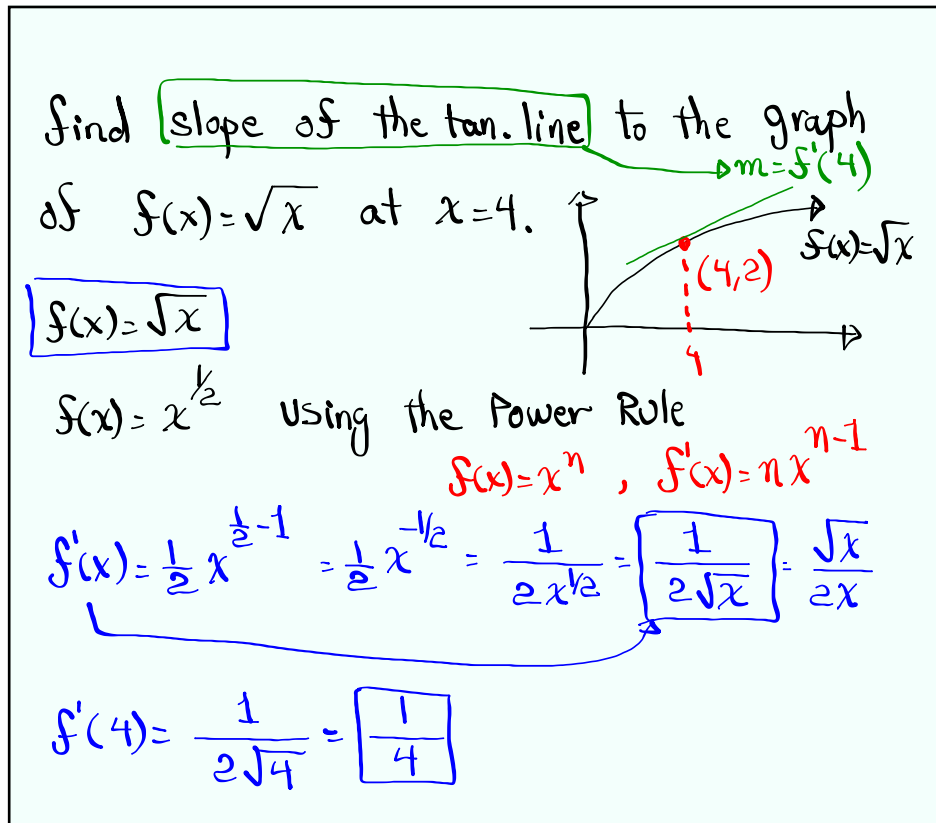 find slope of the tan. line to the graph
m = f'(4)
of f(x) = √x at x = 4.
f(x) = √x
(4,2)
4
f(x) = √x
f(x) = x^{1/2} Using the Power Rule
f(x) = x^n , f'(x) = n x^{n-1}
f'(x) = 1/2 x^{1/2 - 1} = 1/2 x^{-1/2} = 1/(2x^{1/2}) = 1/(2√x) = √x/(2x)
f'(4) = 1/(2√4) = 1/4